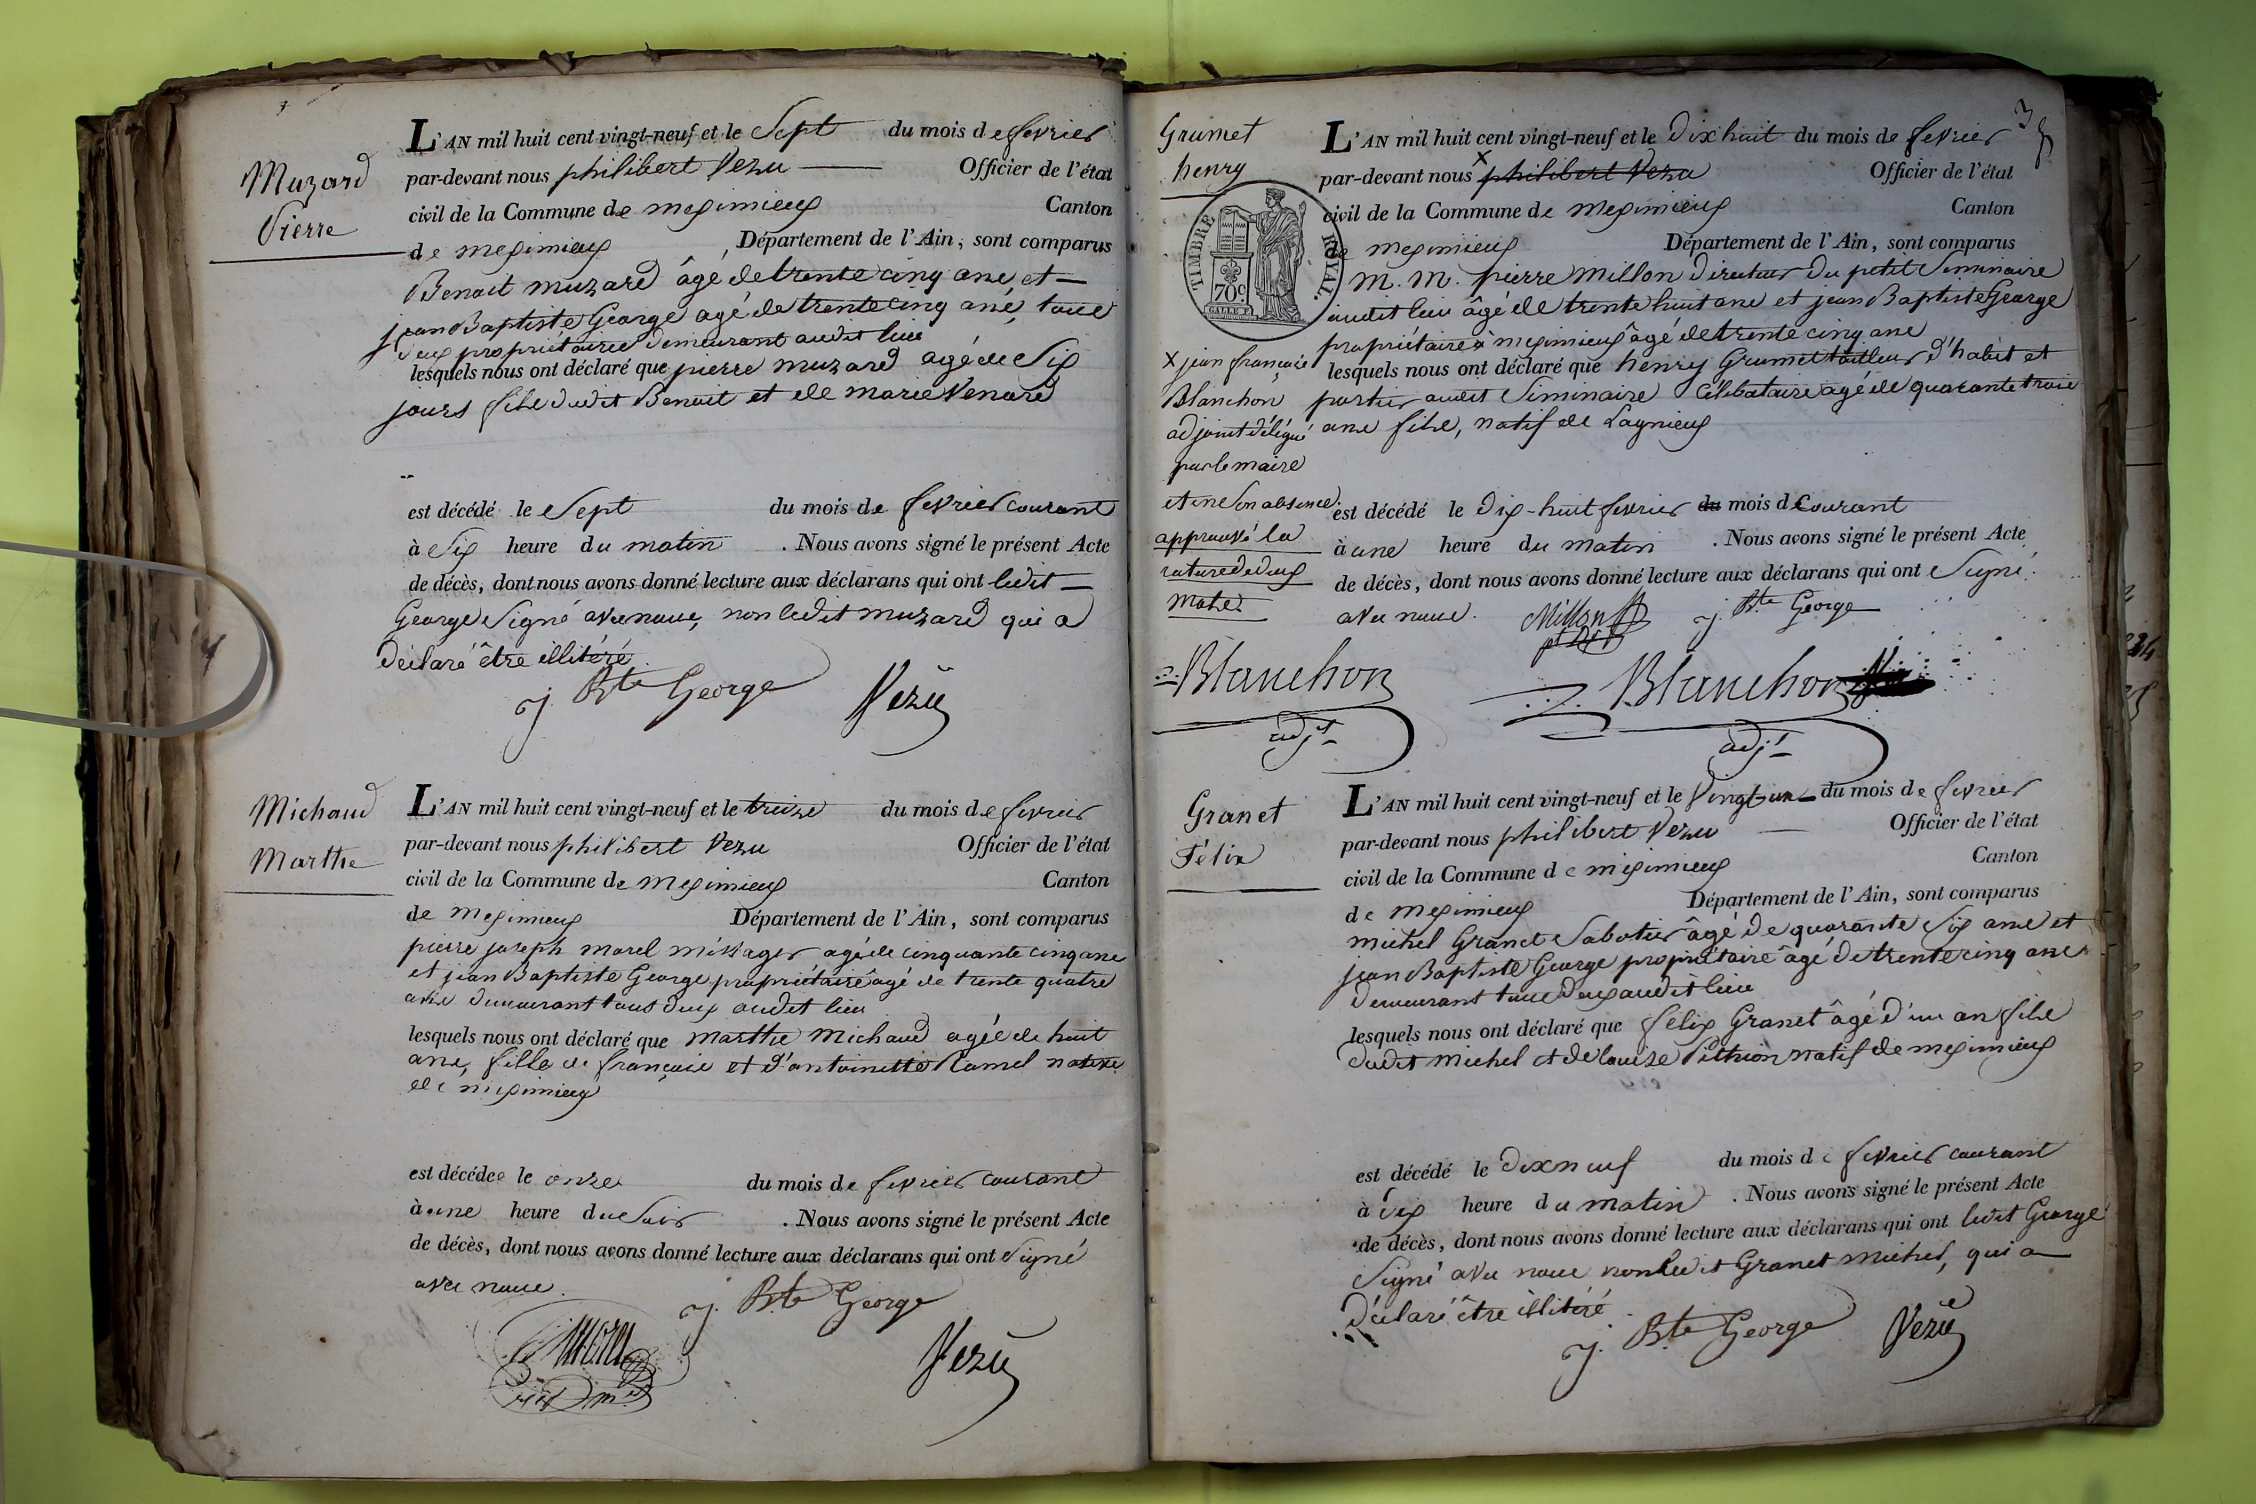 Muzard
Pierre
L'AN mil huit cent vingt-neuf et le Sept du mois de fevrier
par-devant nous philibert Vezu Officier de l'état
civil de la Commune de meximieux Canton
de meximieux Département de l'Ain, sont comparus
Benoit muzard âgé de trente cinq ans, et
jean Baptiste George agé de trente cinq ans, tous
deux propriétaires demeurant audit lieu
lesquels nous ont déclaré que pierre muzard agé de Six
jours fils dudit Benoit et de marie Venard
est décédé le Sept du mois de fevrier courant
à Six heure du matin . Nous avons signé le présent Acte
de décès, dont nous avons donné lecture aux déclarans qui ont ledit
George Signé avec nous, non ledit muzard qui a
déclaré être illitéré.
j. Bte George Vezu
Michaud
Marthe
L'AN mil huit cent vingt-neuf et le treize du mois de fevrier
par-devant nous philibert Vezu Officier de l'état
civil de la Commune de meximieux Canton
de meximieux Département de l'Ain, sont comparus
pierre joseph morel méssager agé de cinquante cinq ans
et jean Baptiste George propriétaire âgé de trente quatre
ans demeurant tous deux audit lieu
lesquels nous ont déclaré que marthe Michaud agée de huit
ans, fille de françois et d'antoinette Ramel native
de meximieux
est décédée le onze du mois de fevrier courant
à une heure du Soir . Nous avons signé le présent Acte
de décès, dont nous avons donné lecture aux déclarans qui ont Signé
avec nous.
j. Bte George
Vezu
3
Grumet
henry
L'AN mil huit cent vingt-neuf et le Dix huit du mois de fevrier
par-devant nous x philibert Vezu Officier de l'état
civil de la Commune de Meximieux Canton
de meximieux Département de l'Ain, sont comparus
M. M. pierre Millon Directeur du petit Seminaire
audit lieu âgé de trente huit ans et jean Baptiste George
propriétaire à meximieux âgé de trente cinq ans
lesquels nous ont déclaré que henry Grumet tailleur d'habit et
portier audit Séminaire Célibataire agé de quarante trois
ans fils, natif de Lagnieux
est décédé le Dix-huit fevrier du mois de Courant
à une heure du matin . Nous avons signé le présent Acte
de décès, dont nous avons donné lecture aux déclarans qui ont Signé
avec nous. Millon j. Bte George
Blanchon
adjt
TIMBRE ROYAL.
70c
x jean françois
Blanchon
adjoint délégué
par le maire
et en Son absence.
approuvé la
rature de deux
mots.
Blanchon
adjt
Granet
Félix
L'AN mil huit cent vingt-neuf et le Vingt-un du mois de fevrier
par-devant nous philibert Vezu Officier de l'état
civil de la Commune de meximieux Canton
de meximieux Département de l'Ain, sont comparus
michel Granet Sabotier âgé de quarante Six ans et
jean Baptiste George propriétaire âgé de trente cinq ans
demeurans tous deux audit lieu
lesquels nous ont déclaré que félix Granet âgé d'un an fils
dudit michel et de louise Péthion natif de meximieux
est décédé le dix neuf du mois de fevrier courant
à dix heure du matin . Nous avons signé le présent Acte
de décès, dont nous avons donné lecture aux déclarans qui ont ledit George
Signé avec nous non ledit Granet michel, qui a
déclaré être illitéré.
j. Bte George Vezu